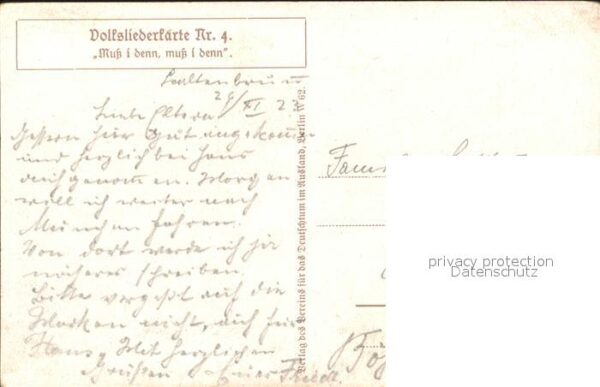 Volksliederkarte Nr. 4.
„Muß i denn, muß i denn".
Kaltenbrunn
Liebe Eltern
Gestern hier gut angekommen
und herzlich bei Hans
aufgenommen. Morgen
will ich weiter nach
München fahren.
Von dort werde ich
näheres schreiben.
Bitte vergeßt auch die
Marken nicht, auch für
Hans. Mit herzlichen
Grüßen Euer Friedl.
Verlag des Vereins für das Deutschtum im Ausland, Berlin W 62.
privacy protection
Datenschutz